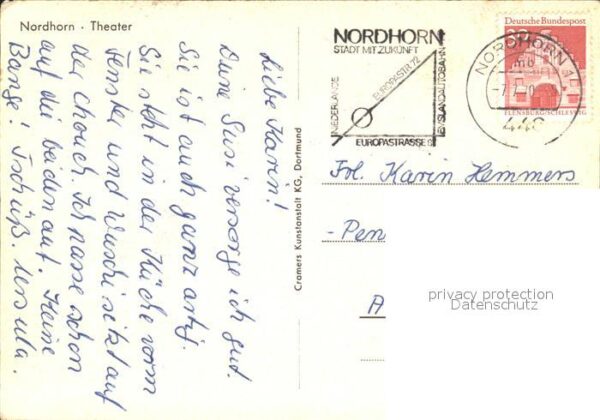 Nordhorn · Theater
Liebe Karin!
Deine Susi versorge ich gut.
Sie ist auch ganz artig.
Sie steht in der Küche vorm
Fenster und Wuschi sitzt auf
der Chouch. Ich passe schon
auf die beiden auf. Keine
Bange! Tschüß. Ursula.
Cramers Kunstanstalt KG, Dortmund
NORDHORN
STADT MIT ZUKUNFT
NIEDERLANDE
EUROPASTR. 72
EMSLANDAUTOBAHN
EUROPASTRASSE 8
NORDHORN
mb
Deutsche Bundespost
FLENSBURG-SCHLESWIG
Frl. Karin Hemmers
-Pen
A
privacy protection
Datenschutz